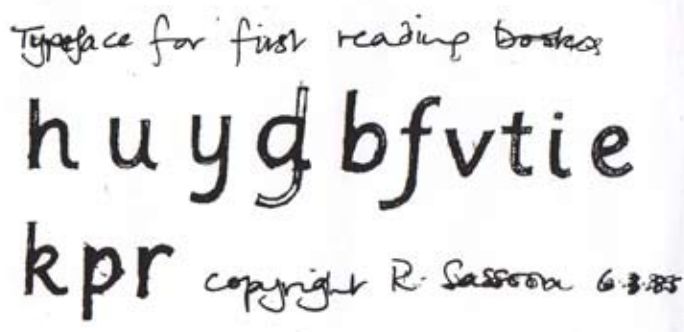 Typeface for first reading books
h u y g b f v t i e
k p r copyright R. Sassoon 6.3.85